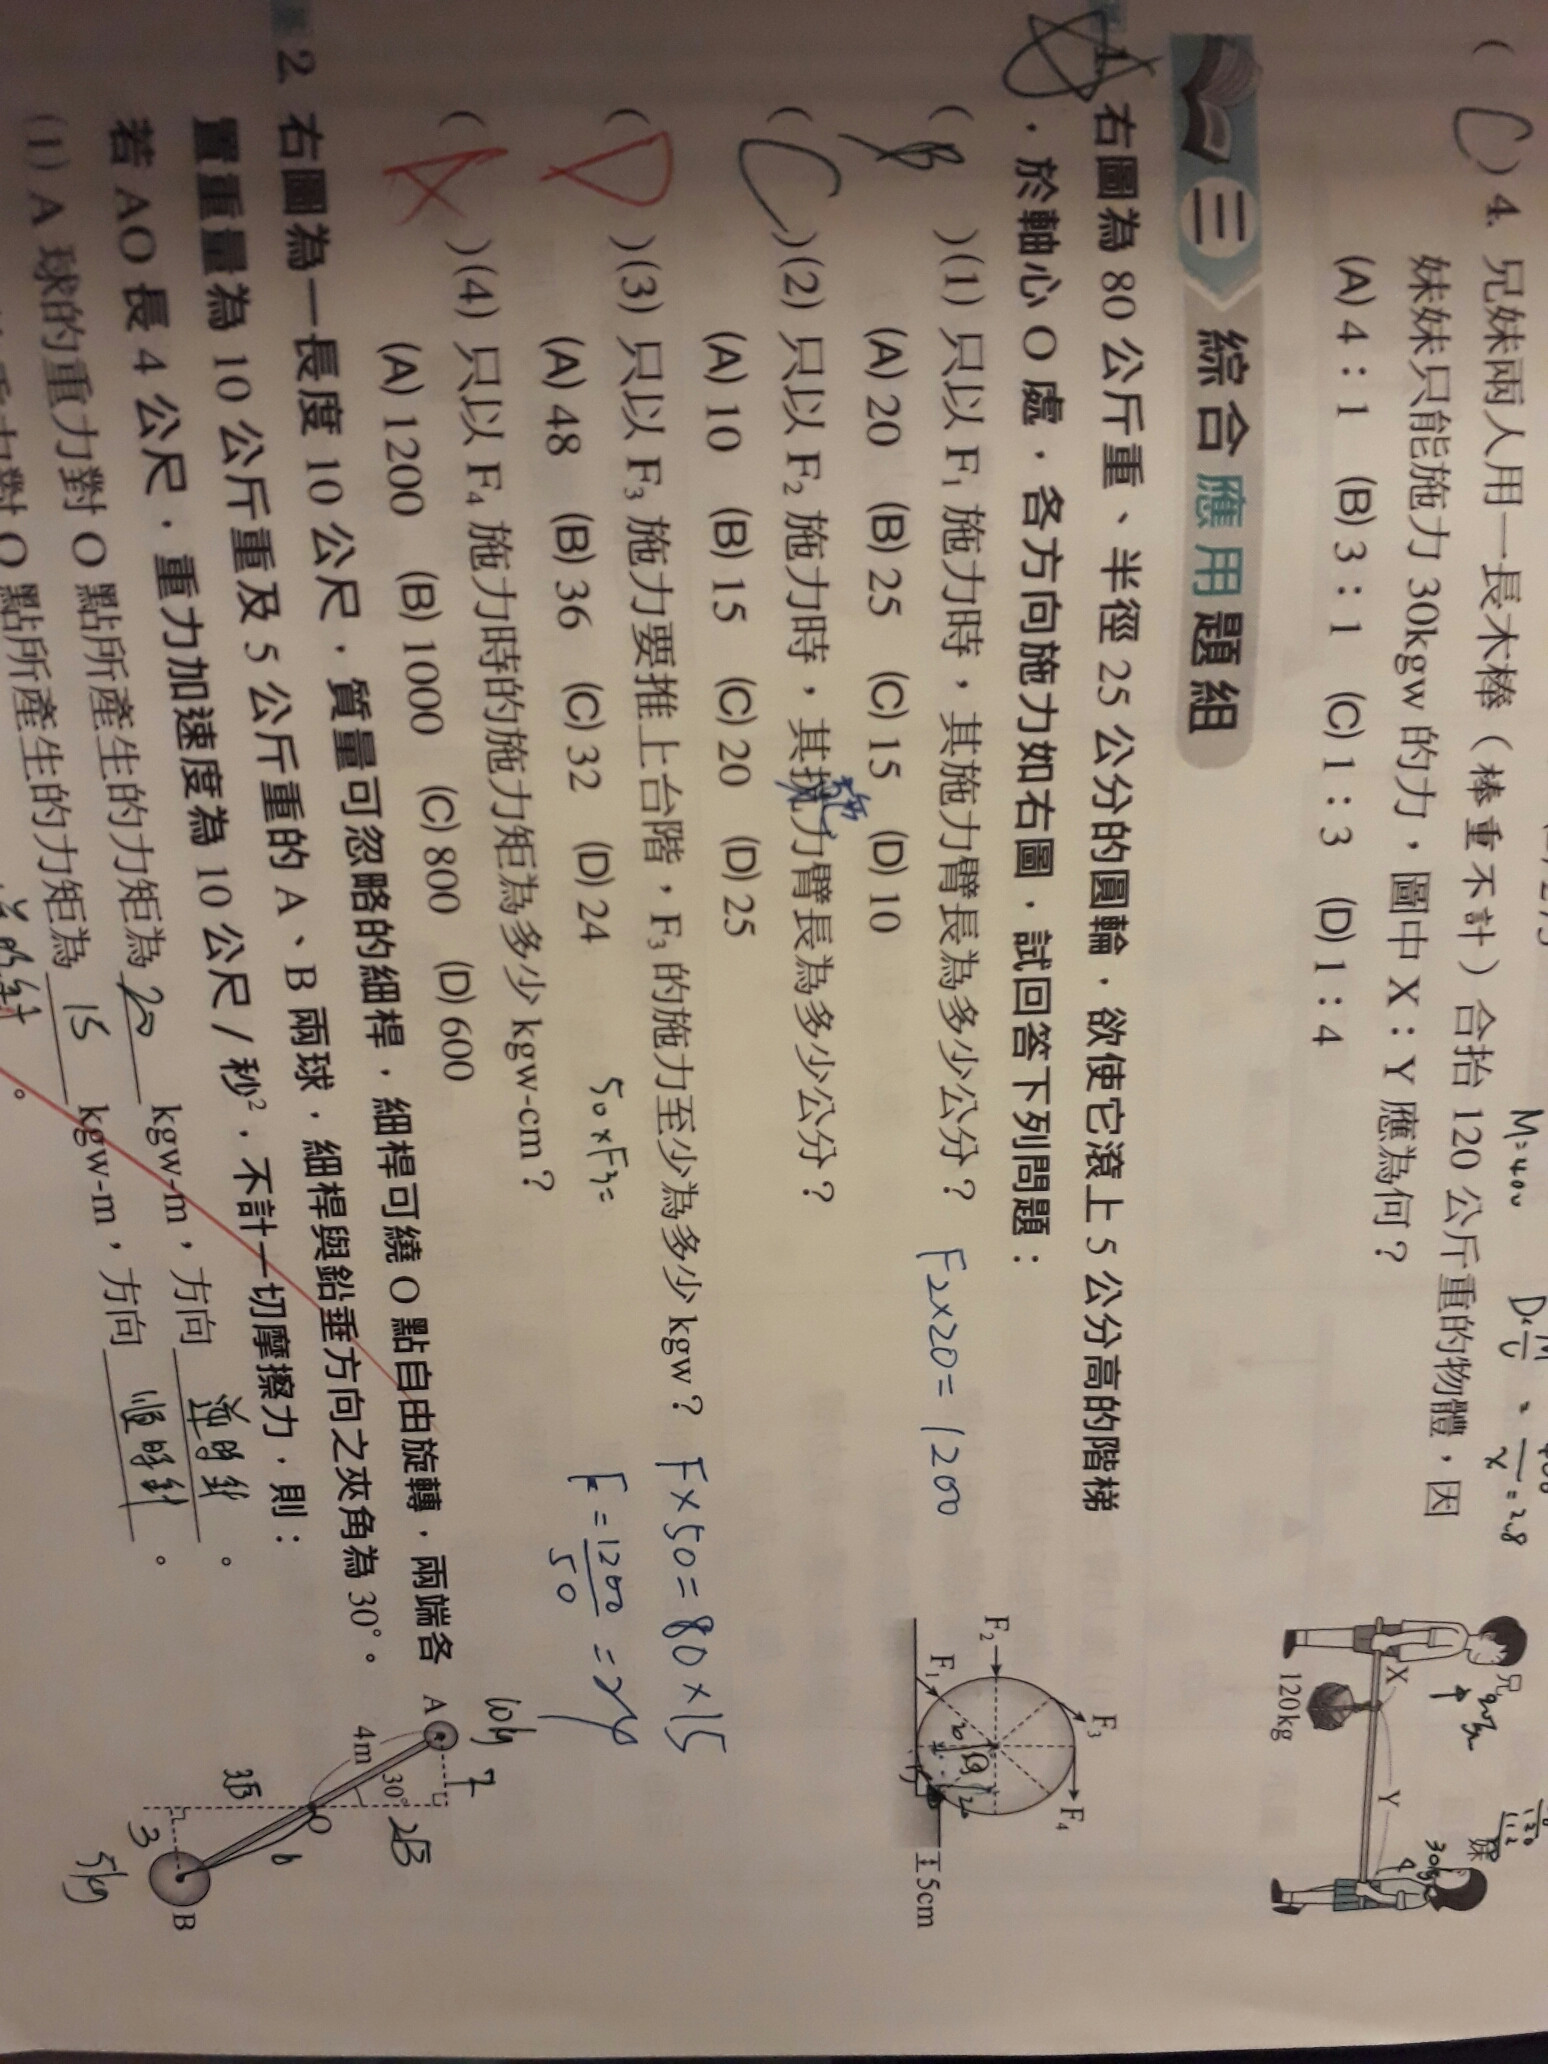 (C) 4. 兄妹兩人用一長木棒（棒重不計）合抬 120 公斤重的物體，因
妹妹只能施力 30kgw 的力，圖中 X：Y 應為何？
(A) 4：1 (B) 3：1 (C) 1：3 (D) 1：4
M=400
兄
X
Y
120kg
妹
三 綜合應用題組
1. 右圖為 80 公斤重、半徑 25 公分的圓輪，欲使它滾上 5 公分高的階梯
，於軸心 O 處，各方向施力如右圖，試回答下列問題：
( B )(1) 只以 F₁ 施力時，其施力臂長為多少公分？
F2×20=1200
(A) 20 (B) 25 (C) 15 (D) 10
( C )(2) 只以 F₂ 施力時，其抗力臂長為多少公分？
施
(A) 10 (B) 15 (C) 20 (D) 25
( D )(3) 只以 F₃ 施力要推上台階，F₃ 的施力至少為多少 kgw？
F×50=80×15
(A) 48 (B) 36 (C) 32 (D) 24
50×F3=
F=1200/50=24
( A )(4) 只以 F₄ 施力時的施力矩為多少 kgw-cm？
(A) 1200 (B) 1000 (C) 800 (D) 600
F₁
F₂
F₃
F₄
5cm
2. 右圖為一長度 10 公尺，質量可忽略的細桿，細桿可繞 O 點自由旋轉，兩端各
置重量為 10 公斤重及 5 公斤重的 A、B 兩球，細桿與鉛垂方向之夾角為 30°。
若 AO 長 4 公尺，重力加速度為 10 公尺／秒²，不計一切摩擦力，則：
(1) A 球的重力對 O 點所產生的力矩為 20 kgw-m，方向 逆時針。
對 O 點所產生的力矩為 15 kgw-m，方向 順時針。
逆時針。
A
4m
30°
O
B
2√3
3√3
3
6
5kg